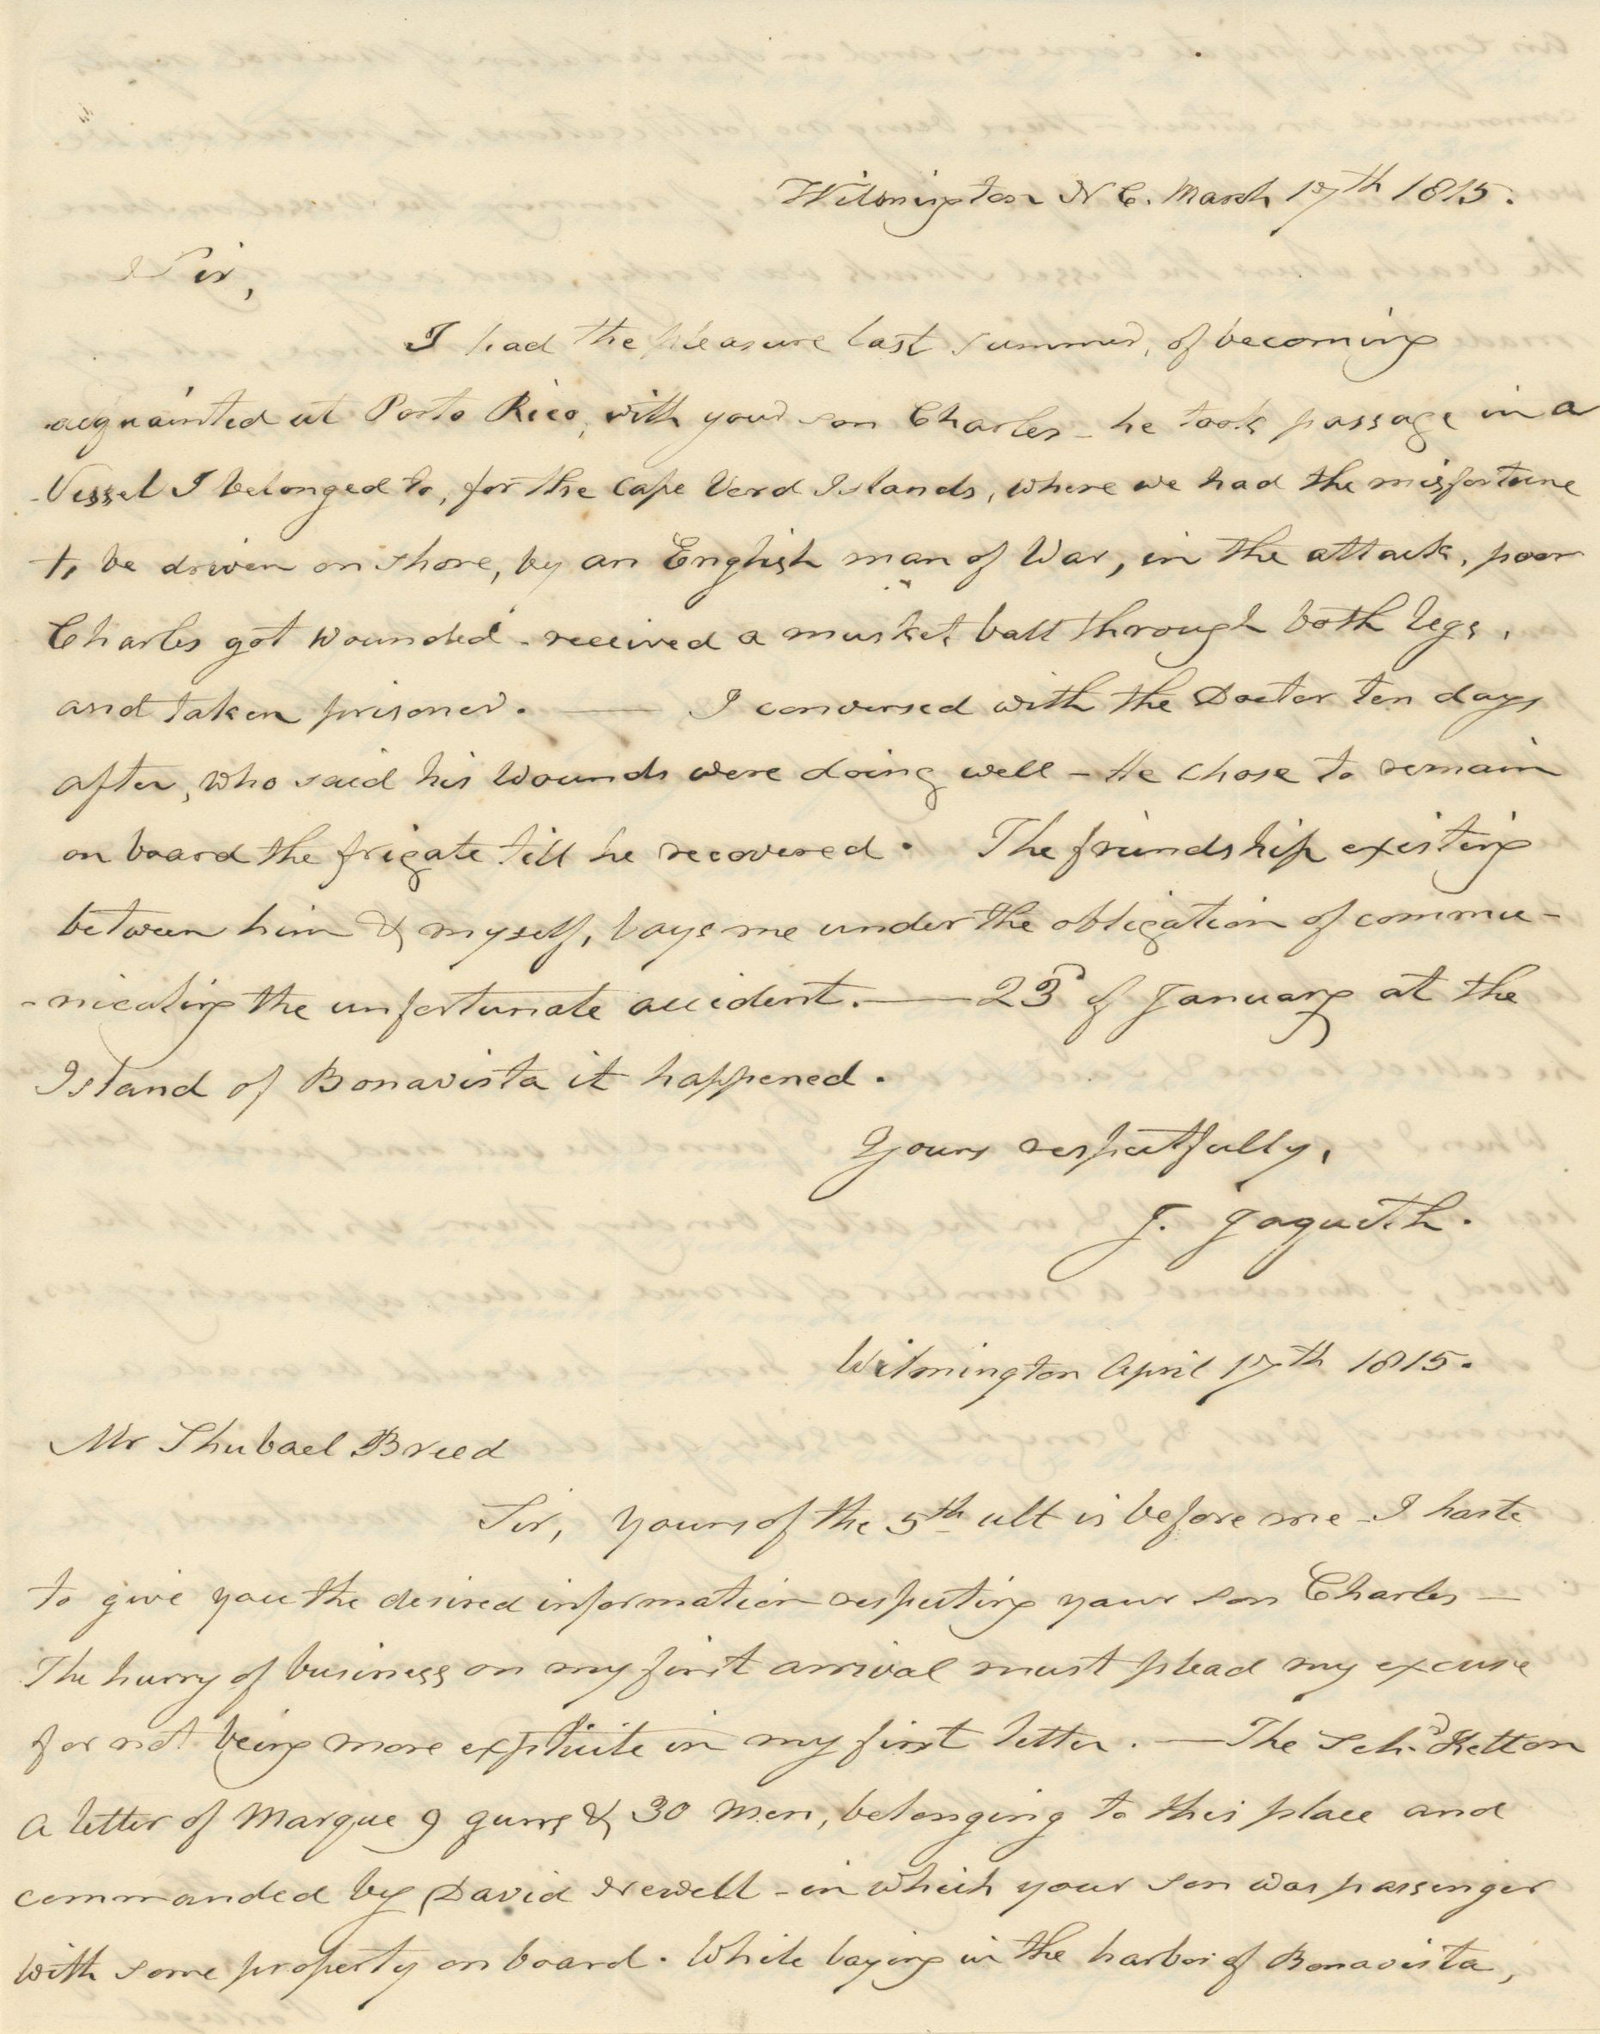 Wilmington N C. March 17th 1815.
Sir,
I had the pleasure last summer, of becoming
acquainted at Porto Rico, with your son Charles - he took passage in a
Vessel I belonged to, for the Cape Verd Islands, where we had the misfortune
to be driven on shore, by an English man of War, in the attack, poor
Charles got wounded - received a musket ball through both legs,
and taken prisoner. — I conversed with the Doctor ten days
after, who said his wounds were doing well - He chose to remain
on board the frigate till he recovered. The friendship existing
between him & myself, lays me under the obligation of commu-
-nicating the unfortunate accident. — 23d of January at the
Island of Bonavista it happened.
Yours respectfully,
J. Jaquith.
Wilmington April 17th 1815.
Mr Shubael Breed
Sir, Yours of the 5th ult is before me - I haste
to give you the desired information respecting your son Charles —
The hurry of business on my first arrival must plead my excuse
for not being more explicite in my first letter. — The Schr
a letter of Marque 9 guns & 30 men, belonging to this place and
commanded by David Newell - in which your son was passenger
with some property on board. While laying in the harbor of Bonavista,